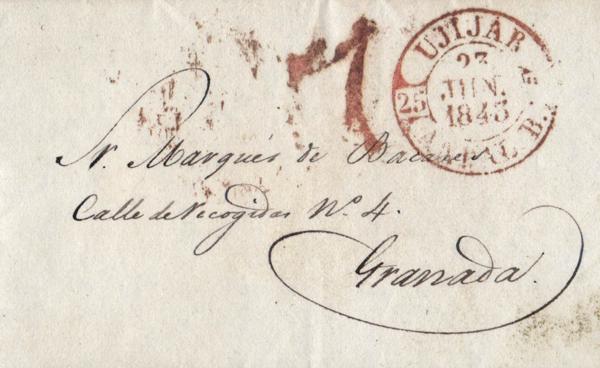 UJIJAR
23
JUN.
1843
25
B.
7
Sr. Marqués de Bacares
Calle de Recogidas N.º 4.
Granada.